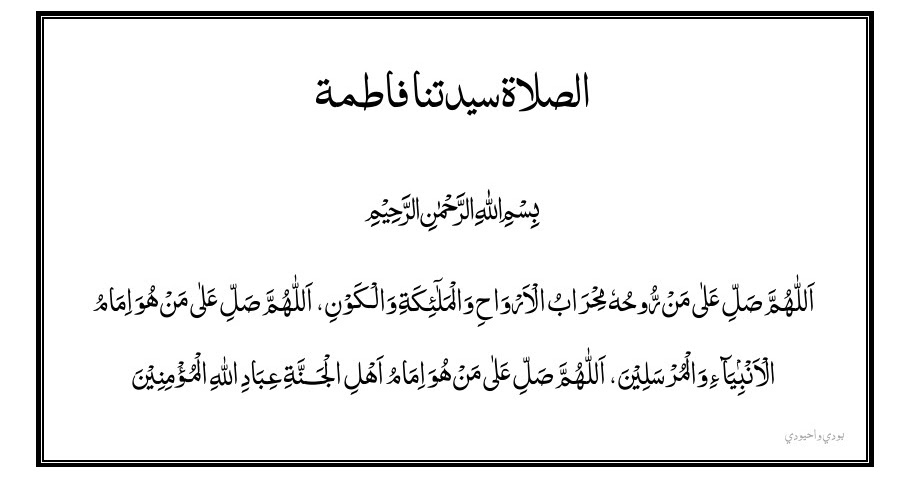 الصلاة سيدتنا فاطمة
بِسْمِ اللهِ الرَّحْمٰنِ الرَّحِيْمِ
اَللّٰهُمَّ صَلِّ عَلٰى مَنْ رُّوحُهٗ مِحْرَابُ الْاَرْوَاحِ وَالْمَلٰٓئِكَةِ وَالْكَوْنِ، اَللّٰهُمَّ صَلِّ عَلٰى مَنْ هُوَ اِمَامُ
الْاَنْبِيَآءِ وَالْمُرْسَلِيْنَ، اَللّٰهُمَّ صَلِّ عَلٰى مَنْ هُوَ اِمَامُ اَهْلِ الْجَنَّةِ عِبَادِ اللهِ الْمُؤْمِنِيْنَ
بودي واحيودي